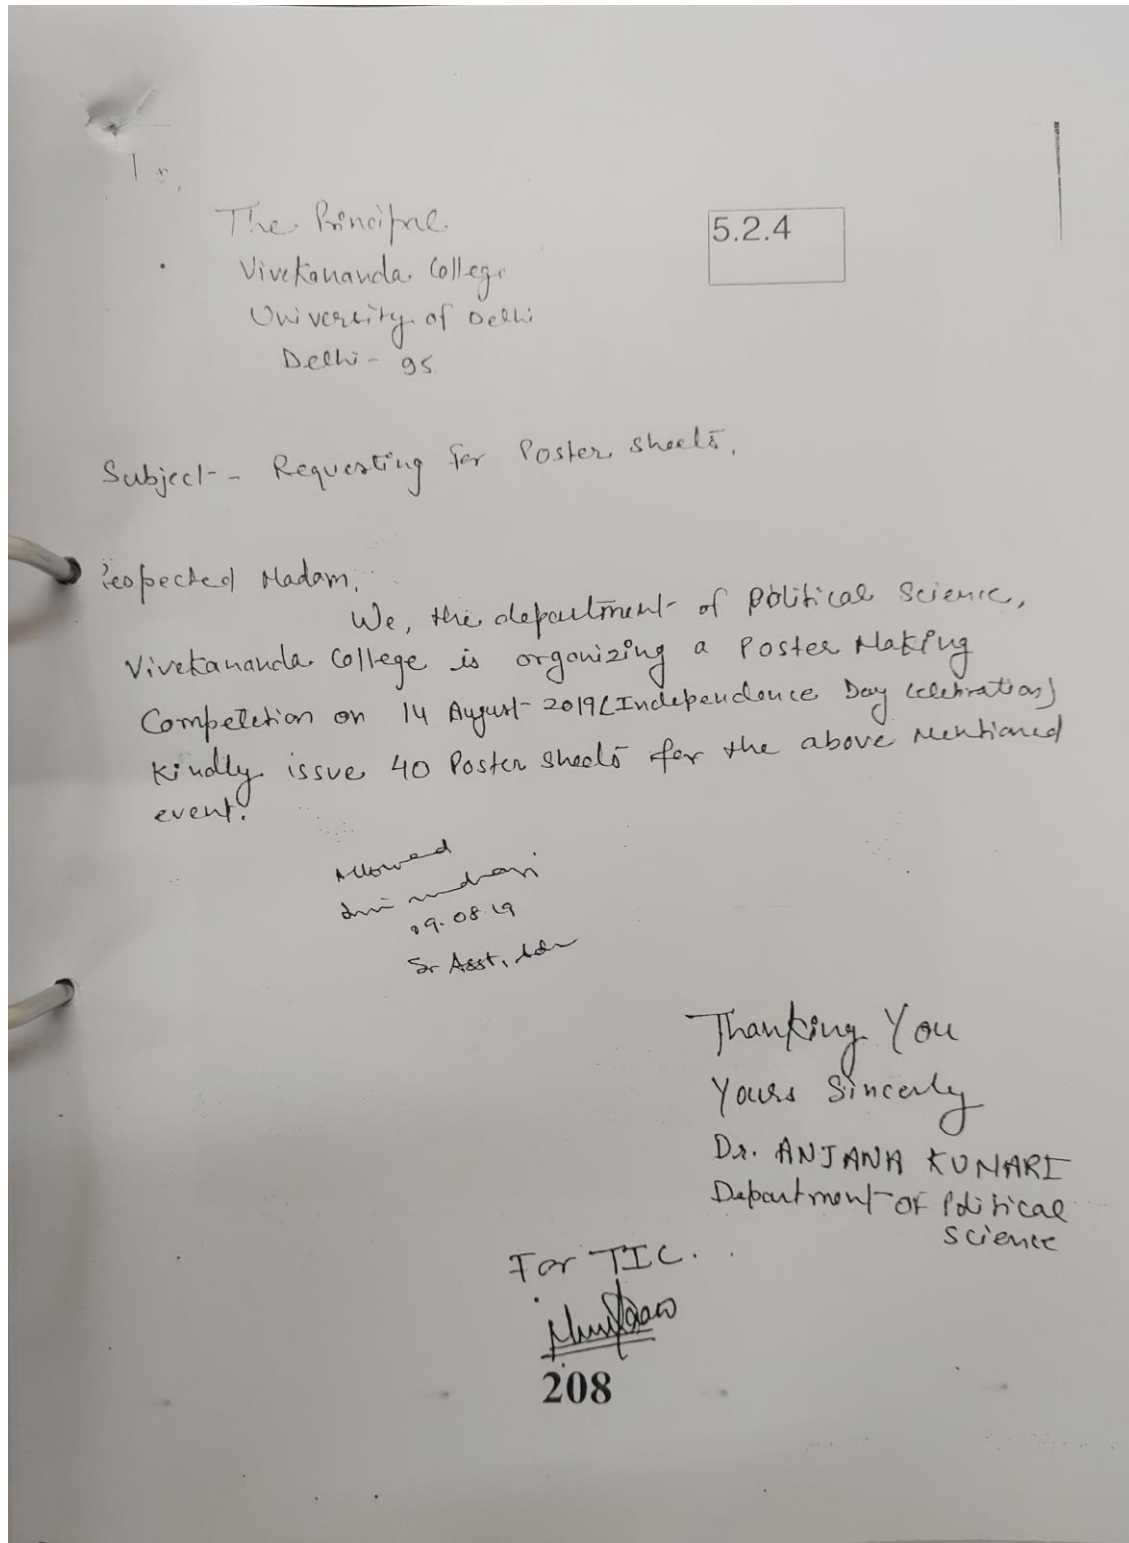 To,
The Principal
5.2.4
Vivekananda College
University of Delhi
Delhi - 95
Subject - Requesting for Poster sheets.
Respected Madam,
We, the department of Political Science,
Vivekananda College is organizing a Poster Making
Competetion on 14 August 2019 (Independence Day Celebration)
Kindly issue 40 Poster sheets for the above Mentioned
event.
Allowed
09.08.19
Sr Asst,
Thanking You
Yours Sincerly
Dr. ANJANA KUMARI
Department OF Political
Science
For TIC.
208